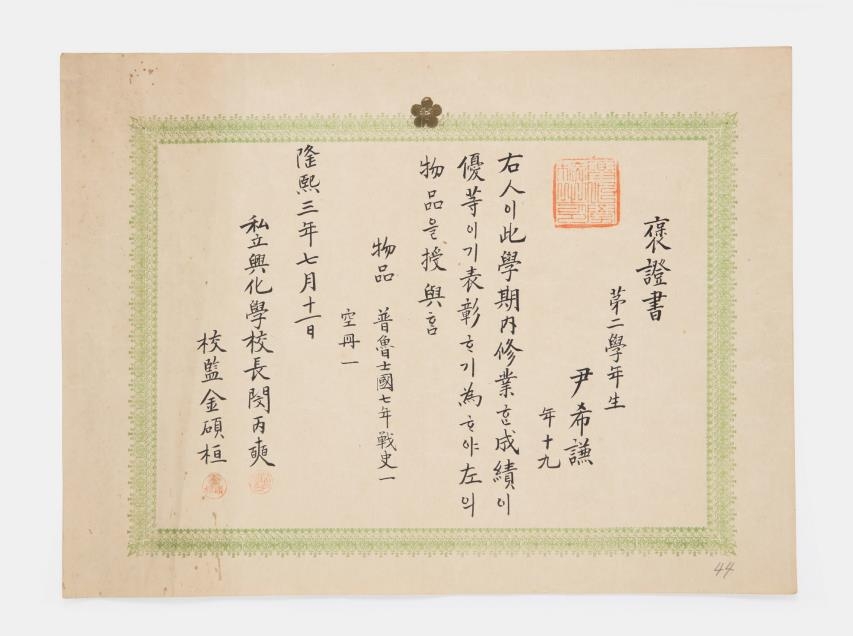 褒證書
第二學年生
尹希謙
年十九
右人이此學期內修業ᄒᆞᆫ成績이
優等이기表彰ᄒᆞ기為ᄒᆞ야左의
物品을授與홈
物品 普魯士國七年戰史一
空冊一
隆熙三年七月十一日
私立興化學校長閔丙奭
校監金碩桓
44